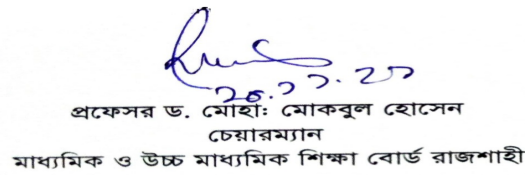 ২৩.১১.২১
প্রফেসর ড. মোহাঃ মোকবুল হোসেন
চেয়ারম্যান
মাধ্যমিক ও উচ্চ মাধ্যমিক শিক্ষা বোর্ড রাজশাহী